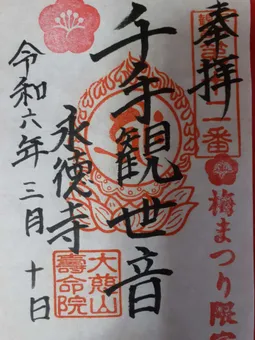 奉拝
梅まつり限定
千手観世音
永徳寺
大慈山
壽命院
令和六年三月十日